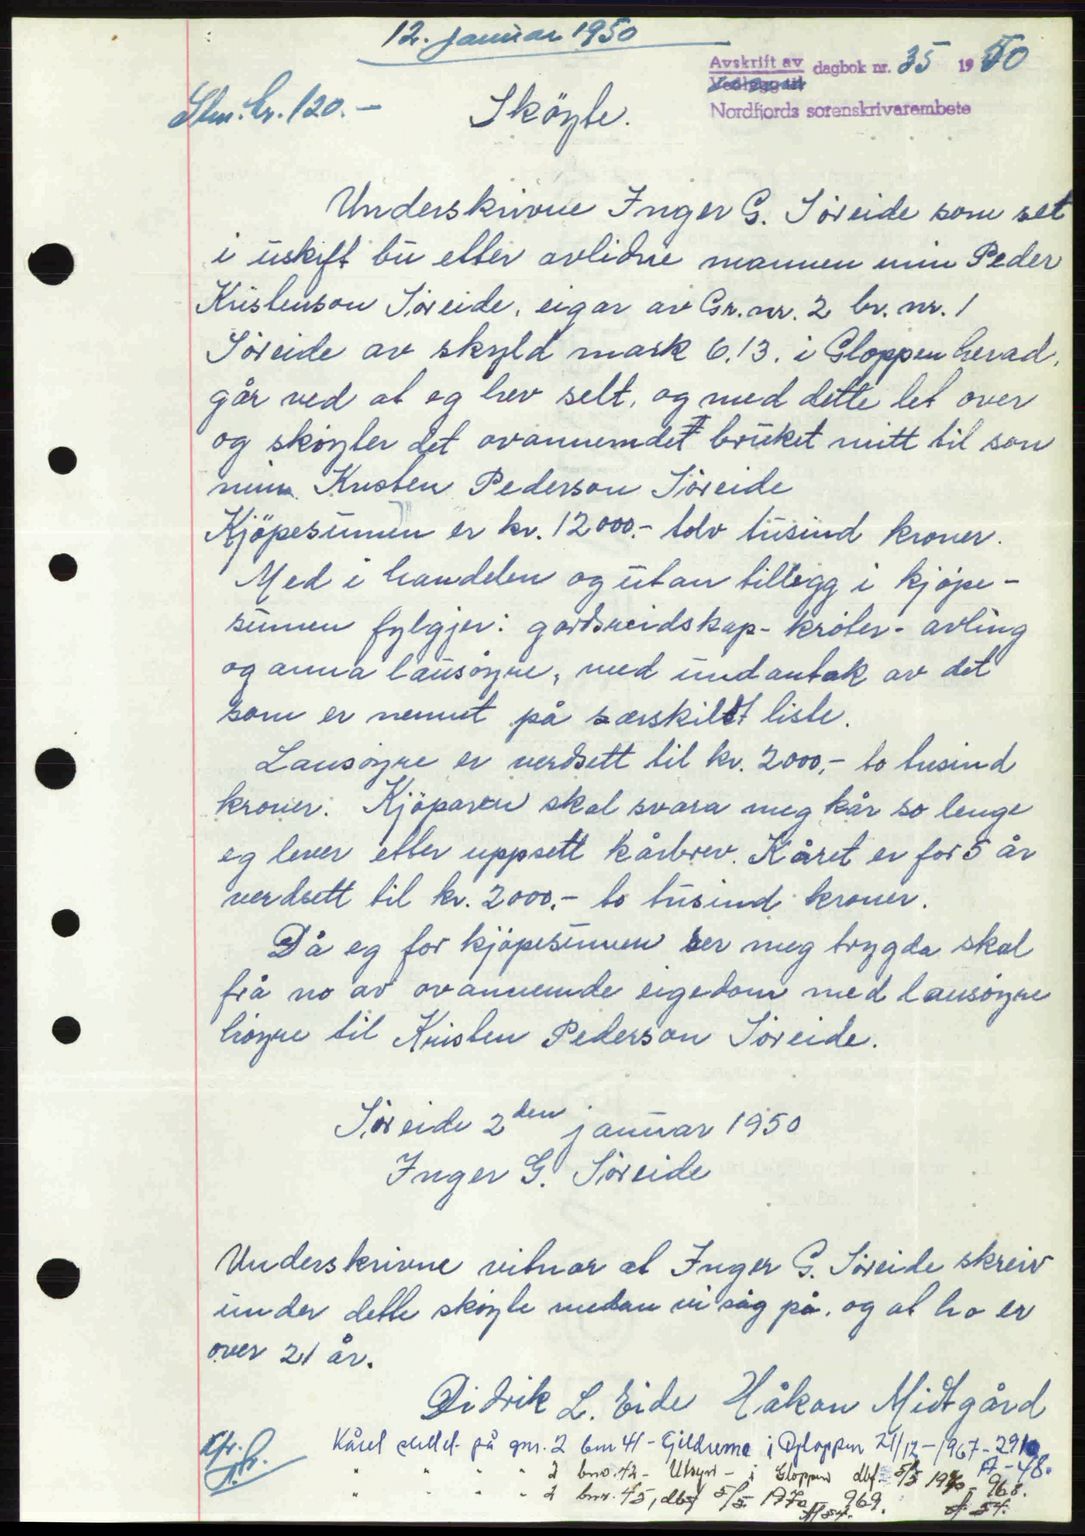 12. januar 1950
Avskrift av dagbok nr. 35 1950
Vedlegg til
Nordfjords sorenskrivarembete
Stm. kr. 120.-
Sköyte.
Underskrivne Inger G. Söreide som set
i uskift bu etter avlidne mannen min Peder
Kristenson Söreide, eigar av Gr. nr. 2 br. nr. 1
Söreide av skyld mark 6.13. i Gloppen herad,
går ved at eg hev selt, og med dette let over
og sköyter det ovannemde bruket mitt til son
min Kristen Pederson Söreide
Kjöpesumen er kr. 12000.- tolv tusind kroner.
Med i handelen og utan tillegg i kjöpe-
sumen fylgjer: gardsreidskap - kröter - avling
og anna lausöyre, med undantak av det
som er nemnt på særskilt liste.
Lausöyre er verdsett til kr. 2000,- to tusind
kroner. Kjöparen skal svara meg kår so lenge
eg lever etter uppsett kårbrev. Kåret er for 5 år
verdsett til kr. 2000.- to tusind kroner.
Då eg for kjöpesumen ser meg trygda skal
frå no av ovannemde eigedom med lausöyre
höyre til Kristen Pederson Söreide.
Söreide 2den januar 1950
Inger G. Söreide
Underskrivne vitnar at Inger G. Söreide skreiv
under dette sköyte medan vi såg på, og at ho er
over 21 år.
Didrik L. Eide Håkon Midtgård
Kåret på gnr. 2 bnr 41 - Gjeldreme i Gloppen 21/12-1967-2910
A-48.
" " " " 2 bnr. 42 - Utsyn - i Gloppen dbf. 5/5 1970 - 968.
" " 2 bnr. 45, dbf 5/5 1970 969. A 54.
A 54.